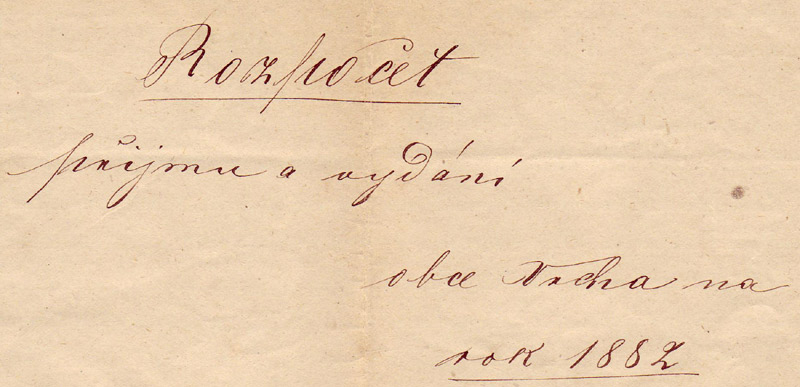 Rozpočet
přijmu a vydání
obce Vrcha na
rok 1882